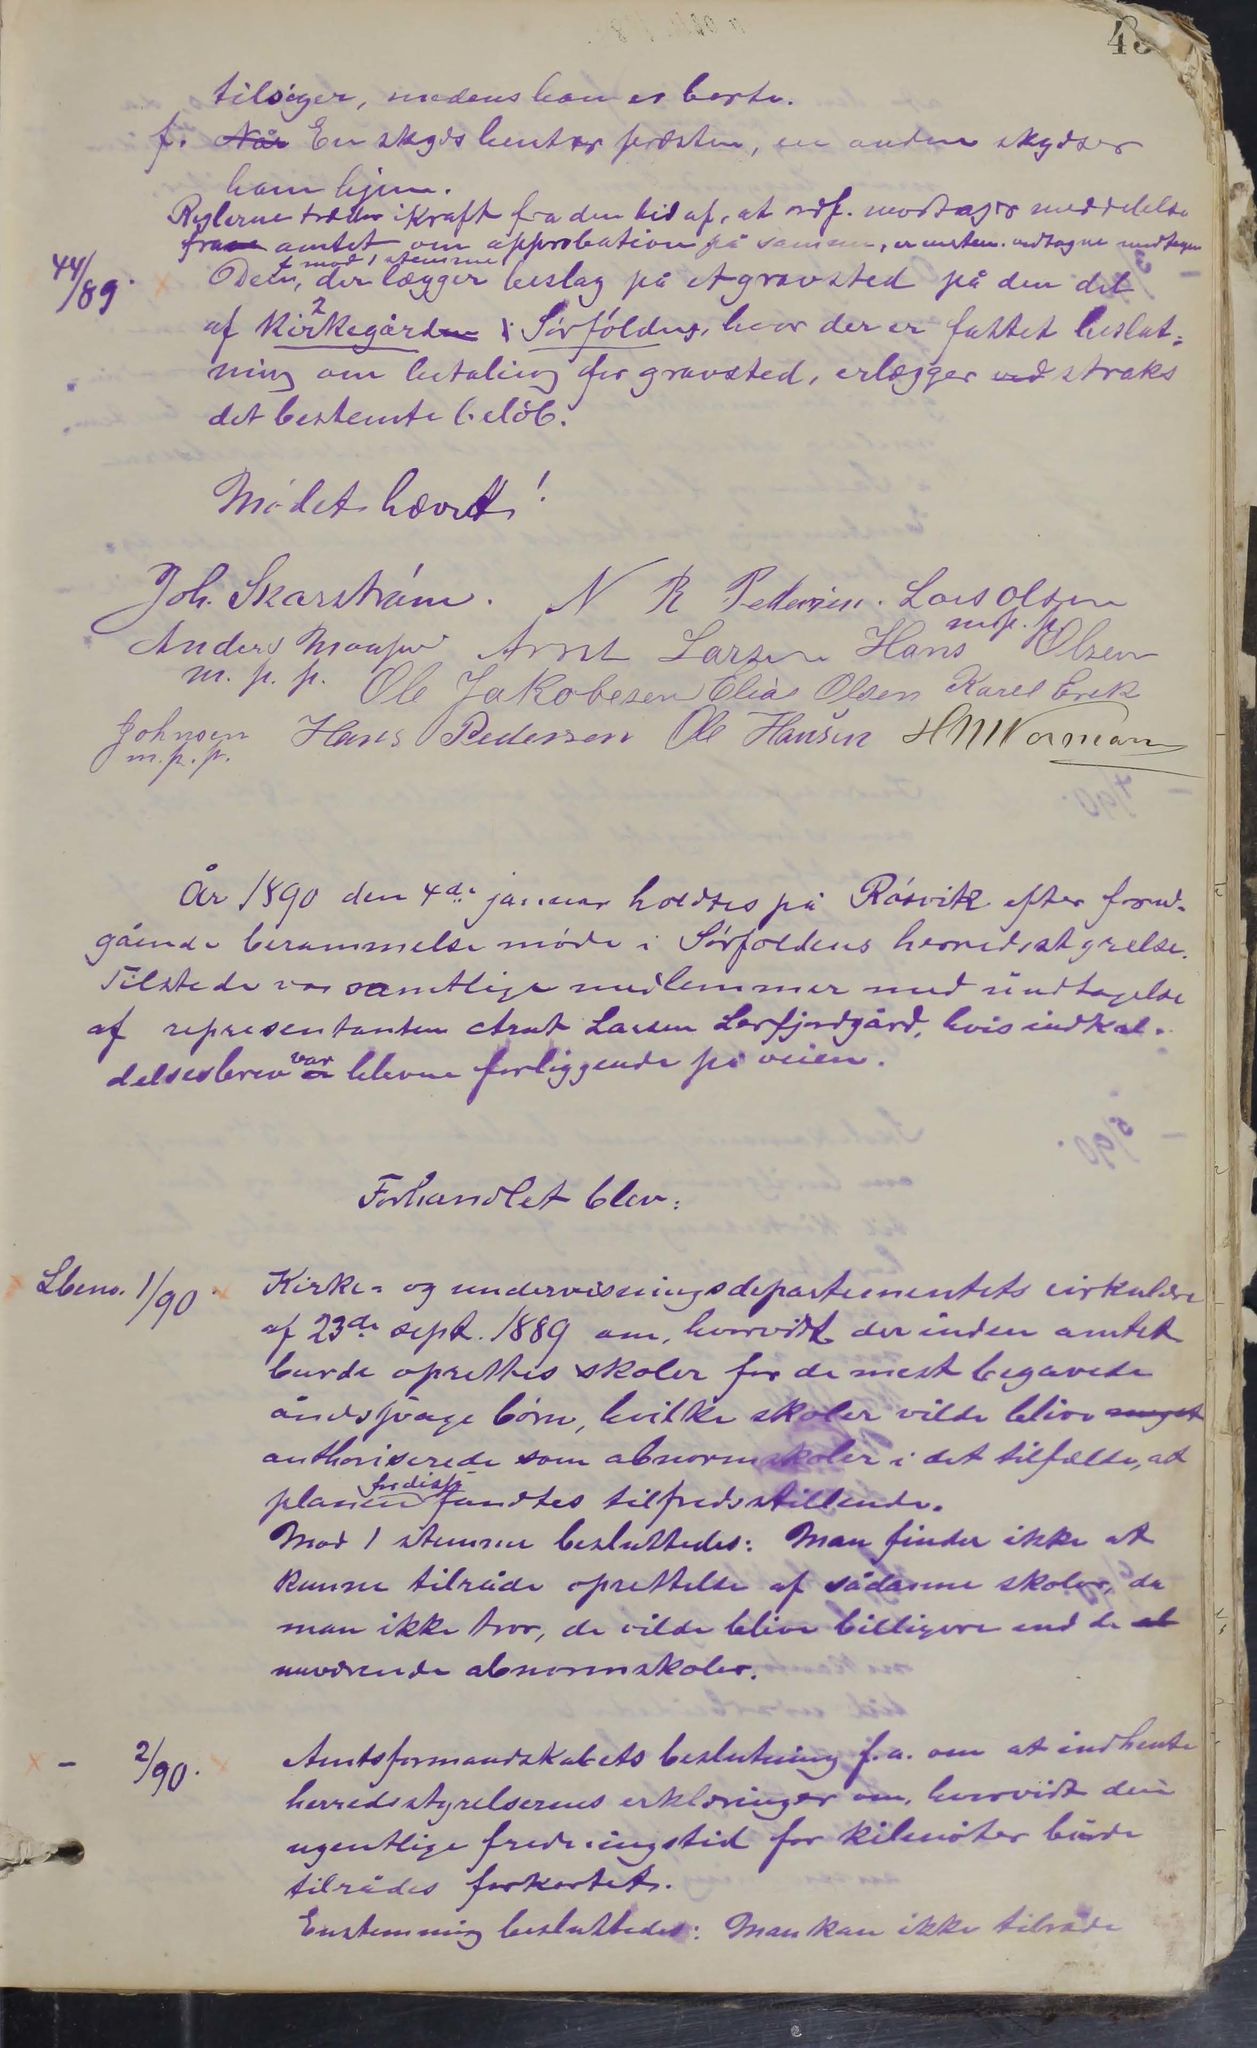 43
tilsiger, medens han er borte.
f. Når En skyds henter præsten, en anden skydser
ham hjem.
Reglerne træder ikraft fra den tid af, at ordf. modtager meddelelse
fra amtet om approbation på samme, 
mod 1 stemme
44/89. Den, der lægger beslag på et gravsted på den del
af kirkegården i Sørfolden, hvor der er fattet beslut-
ning om betaling for gravsted, erlægger ved straks
det bestemte beløb.
Mødet hævet!
Joh. Skarstrøm. N R Pedersen. Lars Olsen
m.p.p.
Anders Arnt Larsen Hans Olsen
m.p.p. Ole Jakobesen Elias Olsen Karel Erik
Johnsen Hans Pedersen Ole Hansen HMNorman
m.p.p.
År 1890 den 4de januar holdtes på Røsvik efter forud-
gående berammelse møde i Sørfoldens herredsstyrelse.
Tilstede var samtlige medlemmer med undtagelse
af representanten Arnt Larsen Lerfjordgård, hvis indkal-
delsesbrev er var blevne forliggende på veien.
Forhandlet blev:
Lbeno. 1/90. Kirke- og undervisningsdepartementets cirkulære
af 23de sept. 1889 om, hvorvidt der inden amtet
burde oprettes skoler for de mest begavede
åndssvage børn, hvilke skoler vilde blive
authoriserede som abnormskoler i det tilfælde, at
planen fandtes tilfredsstillende.
Mod 1 stemme besluttedes: Man finder ikke at
kunne tilråde oprettelse af sådanne skoler, da
man ikke tror, de vilde blive billigere end de ab
nuværende abnormskoler.
- 2/90. Amtsformandskabets beslutning f.a. om at indhente
herredsstyrelsernes erklæringer om, hvorvidt den
ugentlige fredningstid for kilenøter burde
tilrådes forkortet.
Enstemmig besluttedes: Man kan ikke tilråde